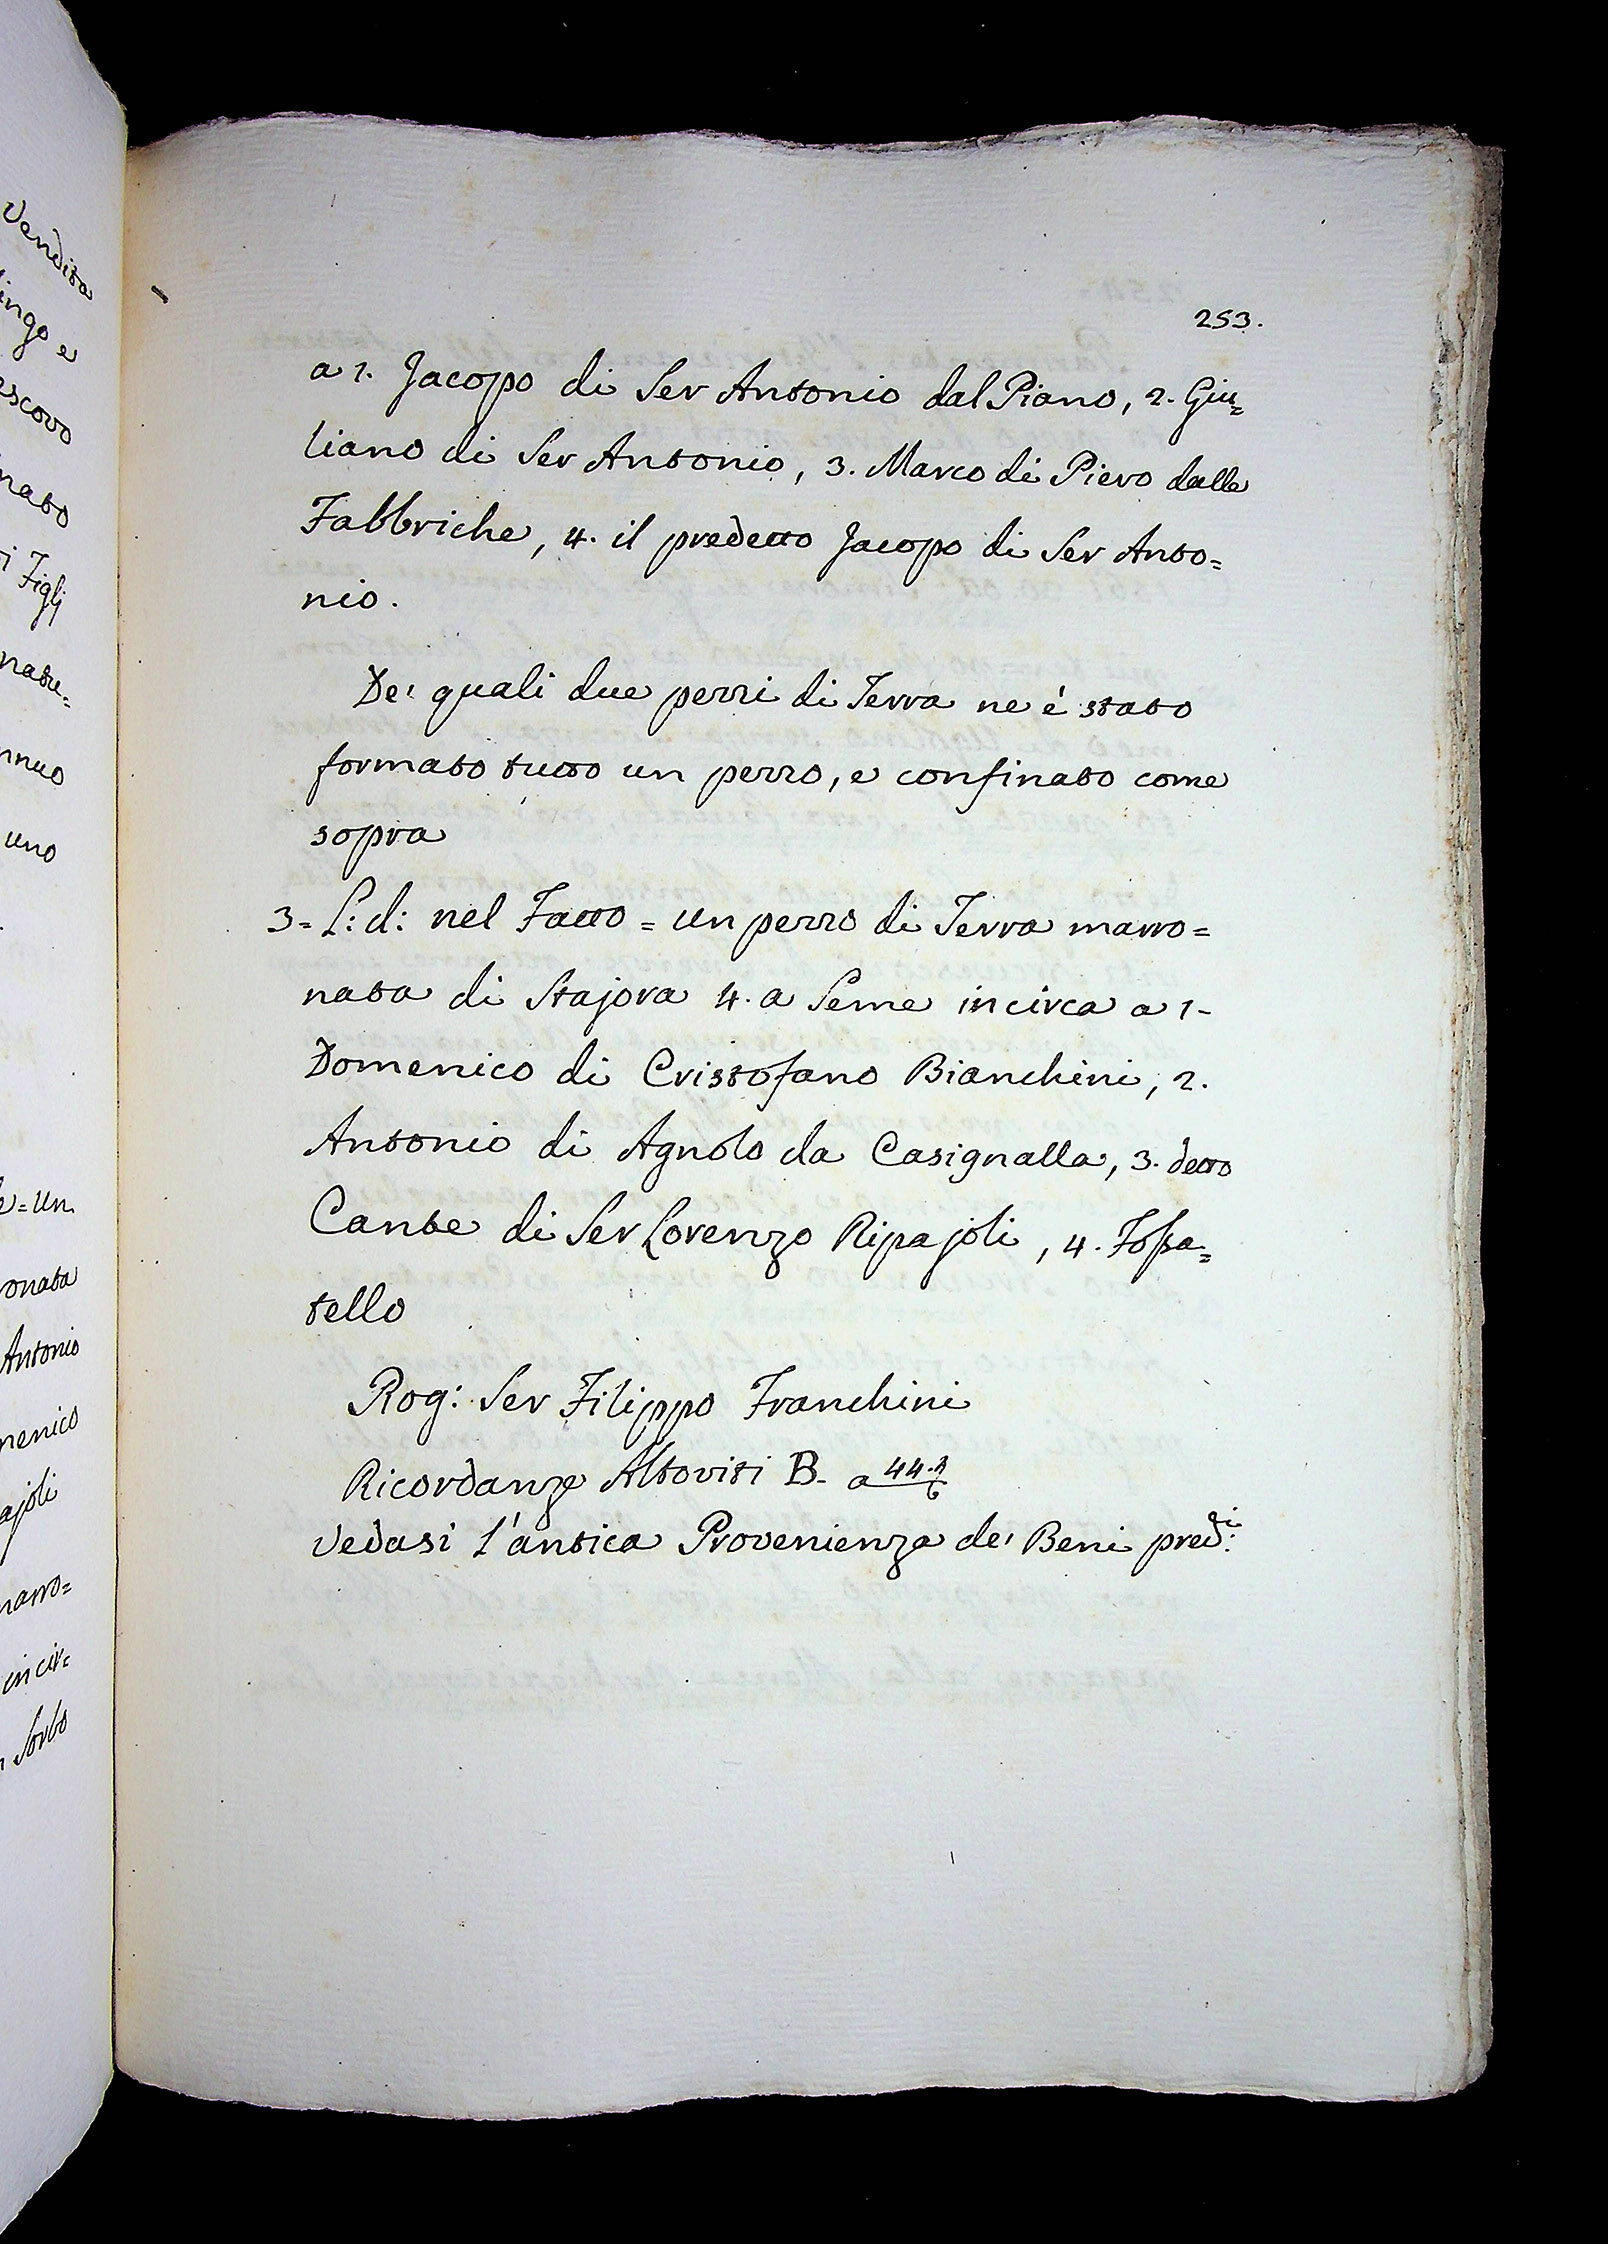 Vendita
ingo e
escovo
nato
i Figlj
natu=
nnuo
uno
e = un
onata
Antonio
menico
ajoli
marro=
in cir=
Sorbo
253.
a 1. Jacopo di Ser Antonio dal Piano, 2. Giu=
liano di Ser Antonio, 3. Marco di Piero dalle
Fabbriche, 4. il predetto Jacopo di Ser Anto=
nio.
De' quali due pezzi di Terra ne é stato
formato tutto un pezzo, e confinato come
sopra
3= L: d: nel Fatto = un pezzo di Terra marro=
nata di Stajora 4. a Seme incirca a 1-
Domenico di Cristofano Bianchini, 2.
Antonio di Agnolo da Casignalla, 3. detto
Cante di Ser Lorenzo Ripajoli, 4. Fossa=
tello
Rog: Ser Filippo Franchini
Ricordanze Altoviti B. a 44.
Vedasi l'antica Provenienza de' Beni pred.i